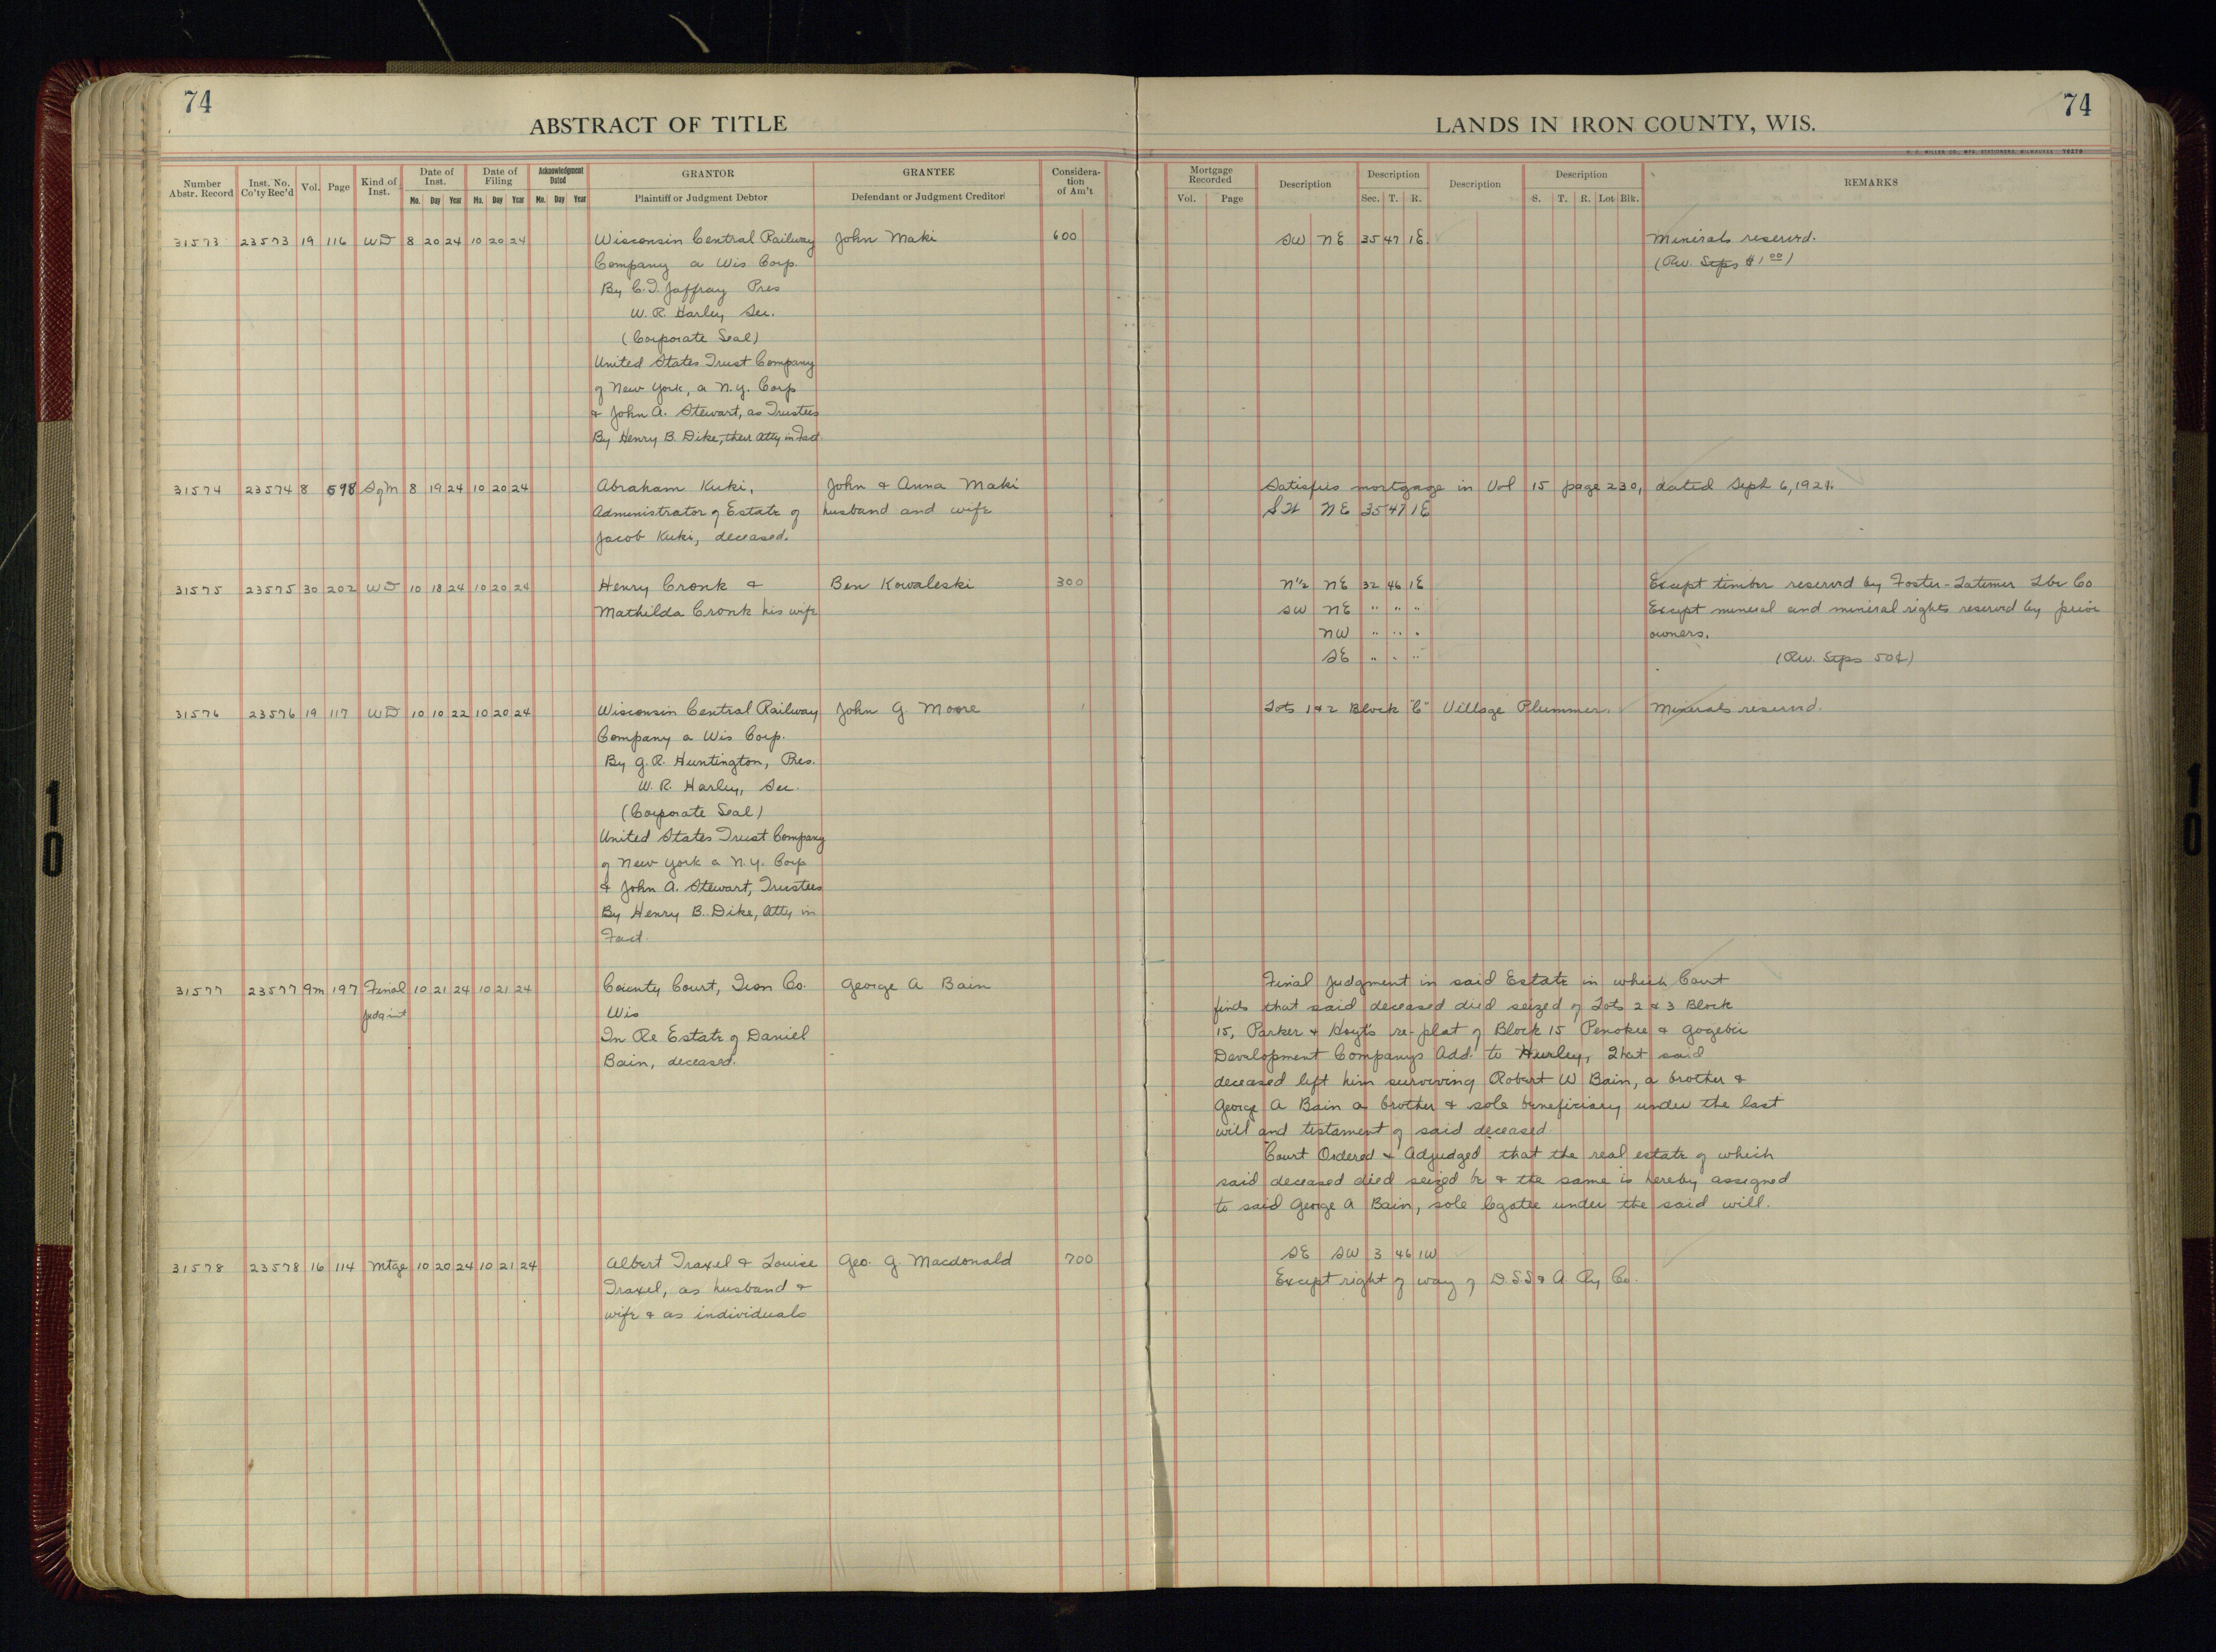 74
74
ABSTRACT OF TITLE
LANDS IN IRON COUNTY, WIS.
H. C. MILLER CO., MFG. STATIONERS, MILWAUKEE 76279
Number Abstr. Record | Inst. No. Co'ty Rec'd | Vol. | Page | Kind of Inst. | Date of Inst. Mo. Day Year | Date of Filing Mo. Day Year | Acknowledgment Dated Mo. Day Year | GRANTOR Plaintiff or Judgment Debtor | GRANTEE Defendant or Judgment Creditor | Considera-tion of Am't
Mortgage Recorded Vol. Page | Description | Description Sec. T. R. | Description | Description S. T. R. Lot Blk. | REMARKS
31573 23573 19 116 WD 8 20 24 10 20 24 Wisconsin Central Railway John Maki 600 SW NE 35 47 1E. Minerals reserved.
Company a Wis Corp. (Rev. Stps $1 00)
By C.T. Jaffray Pres
W. R. Harley Sec.
(Corporate Seal)
United States Trust Company
of New York, a N.Y. Corp
& John A. Stewart, as Trustees
By Henry B. Dike, their Atty in Fact.
31574 23574 8 598 SofM 8 19 24 10 20 24 Abraham Kuki, John & Anna Maki Satisfies mortgage in Vol 15 page 230, dated Sept 6, 1921.
Administrator of Estate of husband and wife SW NE 35 47 1E
Jacob Kuki, deceased.
31575 23575 30 202 WD 10 18 24 10 20 24 Henry Cronk & Ben Kowaleski 300 N½ NE 32 46 1E Except timber reserved by Foster-Latimer Lbr Co
Mathilda Cronk his wife SW NE " " " Except mineral and mineral rights reserved by prior
NW " " " owners.
SE " " " (Rev. Stps 50¢)
31576 23576 19 117 WD 10 10 22 10 20 24 Wisconsin Central Railway John G Moore 1 Lots 1 & 2 Block "C" Village Plummer. Minerals reserved.
Company a Wis Corp.
By G. R. Huntington, Pres.
W. R. Harley, Sec.
(Corporate Seal)
United States Trust Company
of New York a N.Y. Corp
& John A. Stewart, Trustees
By Henry B. Dike, Atty in
Fact.
31577 23577 9m 197 Final 10 21 24 10 21 24 County Court, Iron Co. George A Bain Final Judgment in said Estate in which Court
Judgmt Wis finds that said deceased died seized of Lots 2 & 3 Block
In Re Estate of Daniel 15, Parker & Hoyt's re-plat of Block 15 Penokee & Gogebic
Bain, deceased. Development Companys Add. to Hurley, That said
deceased left him surviving Robert W Bain, a brother &
George A Bain a brother & sole beneficiary under the last
will and testament of said deceased
Court Ordered & Adjudged that the real estate of which
said deceased died seized be & the same is hereby assigned
to said George A Bain, sole legatee under the said will.
31578 23578 16 114 Mtge 10 20 24 10 21 24 Albert Traxel & Louise Geo. G. Macdonald 700 SE SW 3 46 1W
Traxel, as husband & Except right of way of D.S.S & A Ry Co.
wife & as individuals
10
10